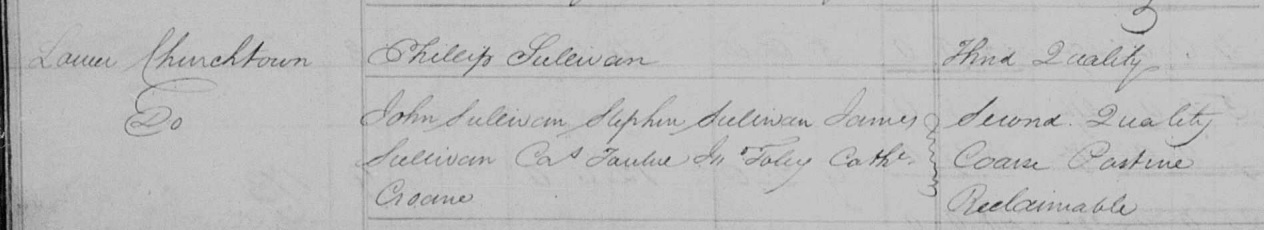 Lower Churchtown Phillip Sullivan Third Quality
Do John Sullivan Stephen Sullivan James Second Quality
Sullivan Cos Jno Foley Cathe Coarse Pasture
Croane Reclaimable